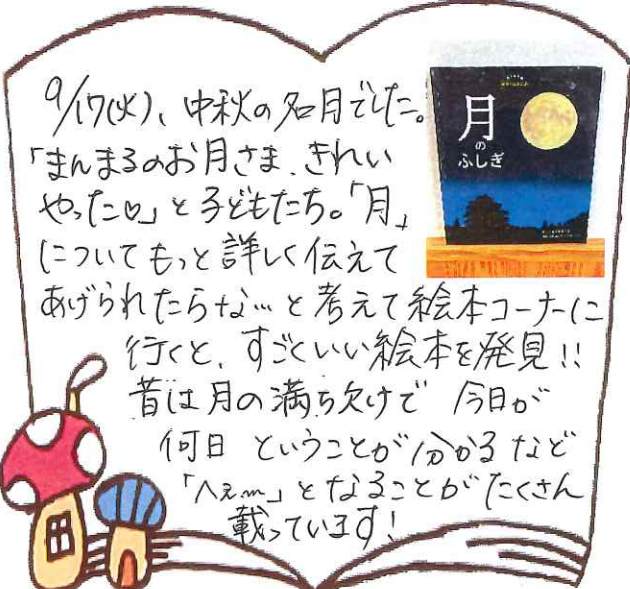 9/17(火)、中秋の名月でした。
「まんまるのお月さま、きれい
やった♡」と子どもたち。「月」
についてもっと詳しく伝えて
あげられたらな…と考えて絵本コーナーに
行くと、すごくいい絵本を発見!!
昔は月の満ち欠けで 今日が
何日 ということが分かる など
「へぇ〜」となることがたくさん
載っています!
月
の
ふしぎ